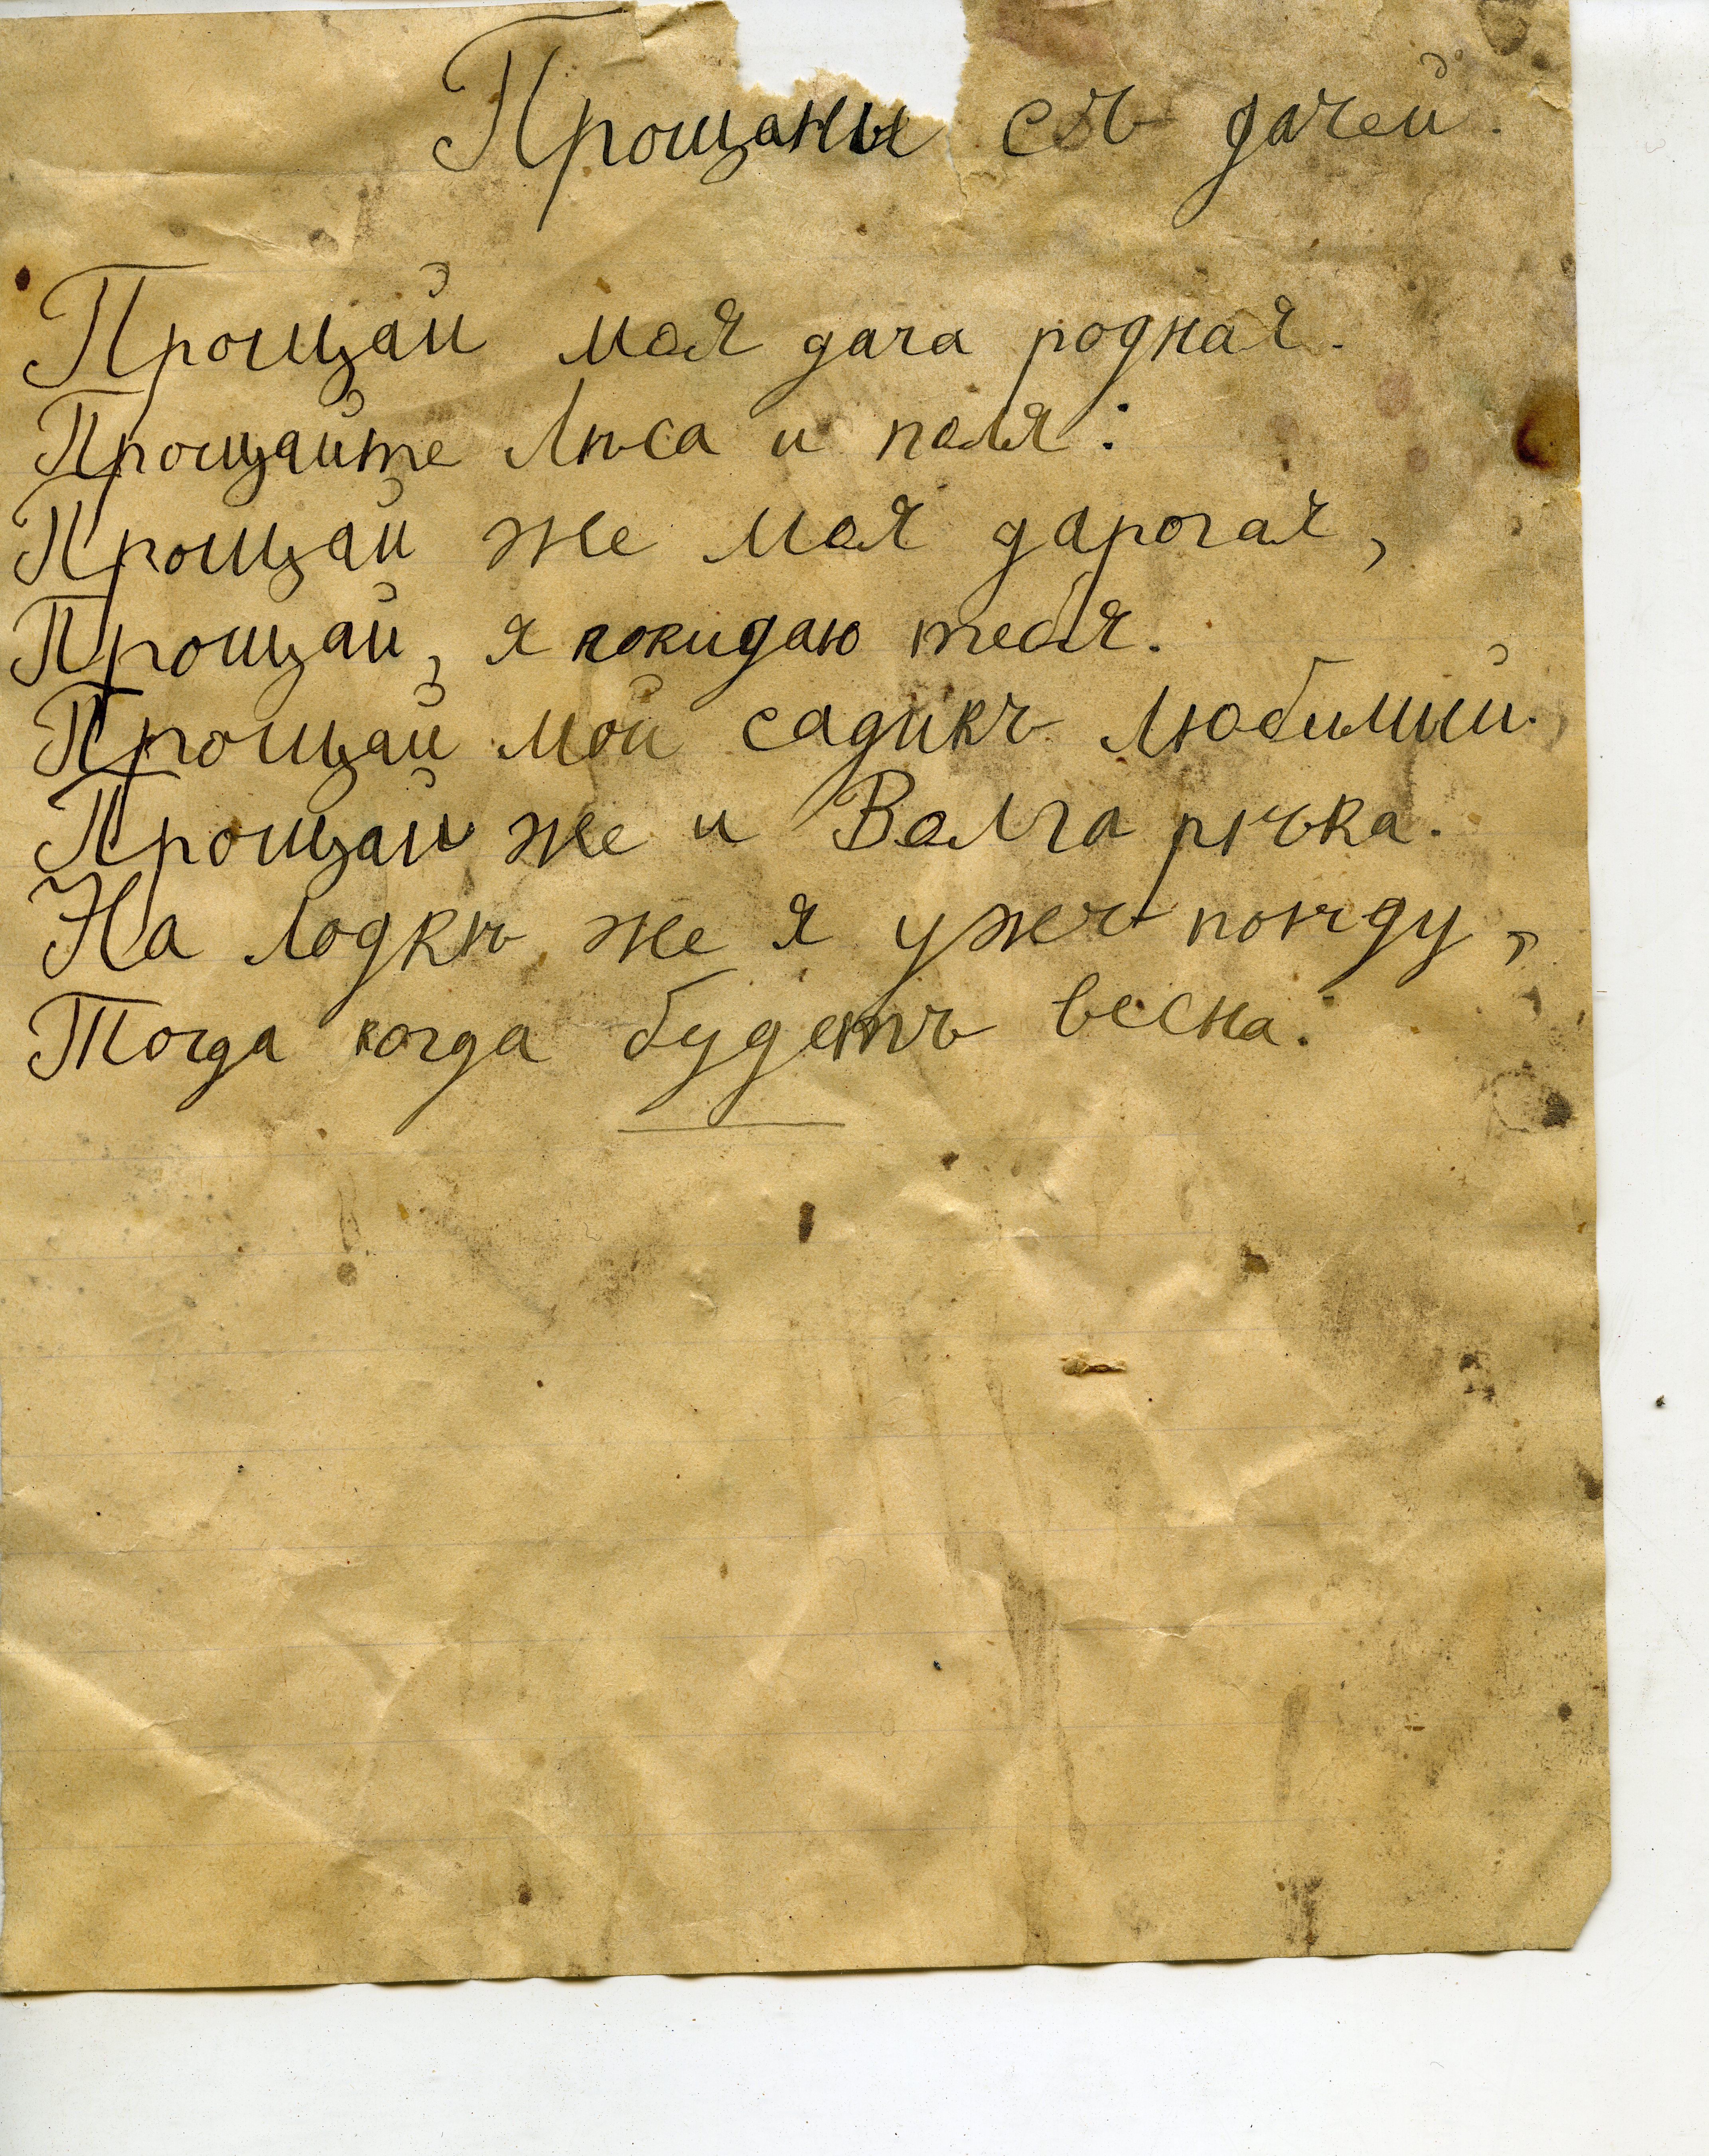 Прощаны съ дачей.
Прощай моя дача родная.
Прощайте Лѣса и поля.
Прощай же моя дарогая,
Прощай, я покидаю тебя.
Прощай мой садикъ любимый.
Прощай же и Волга рѣчка.
На лодкѣ же я ужъ поѣду,
Тогда когда будетъ весна.